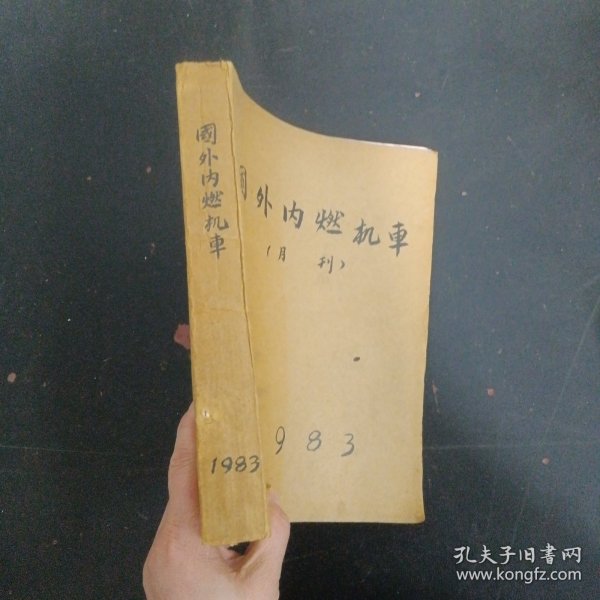 國外内燃机車
1983
國外内燃机車
(月 刊)
983
孔夫子旧書网
www.kongfz.com